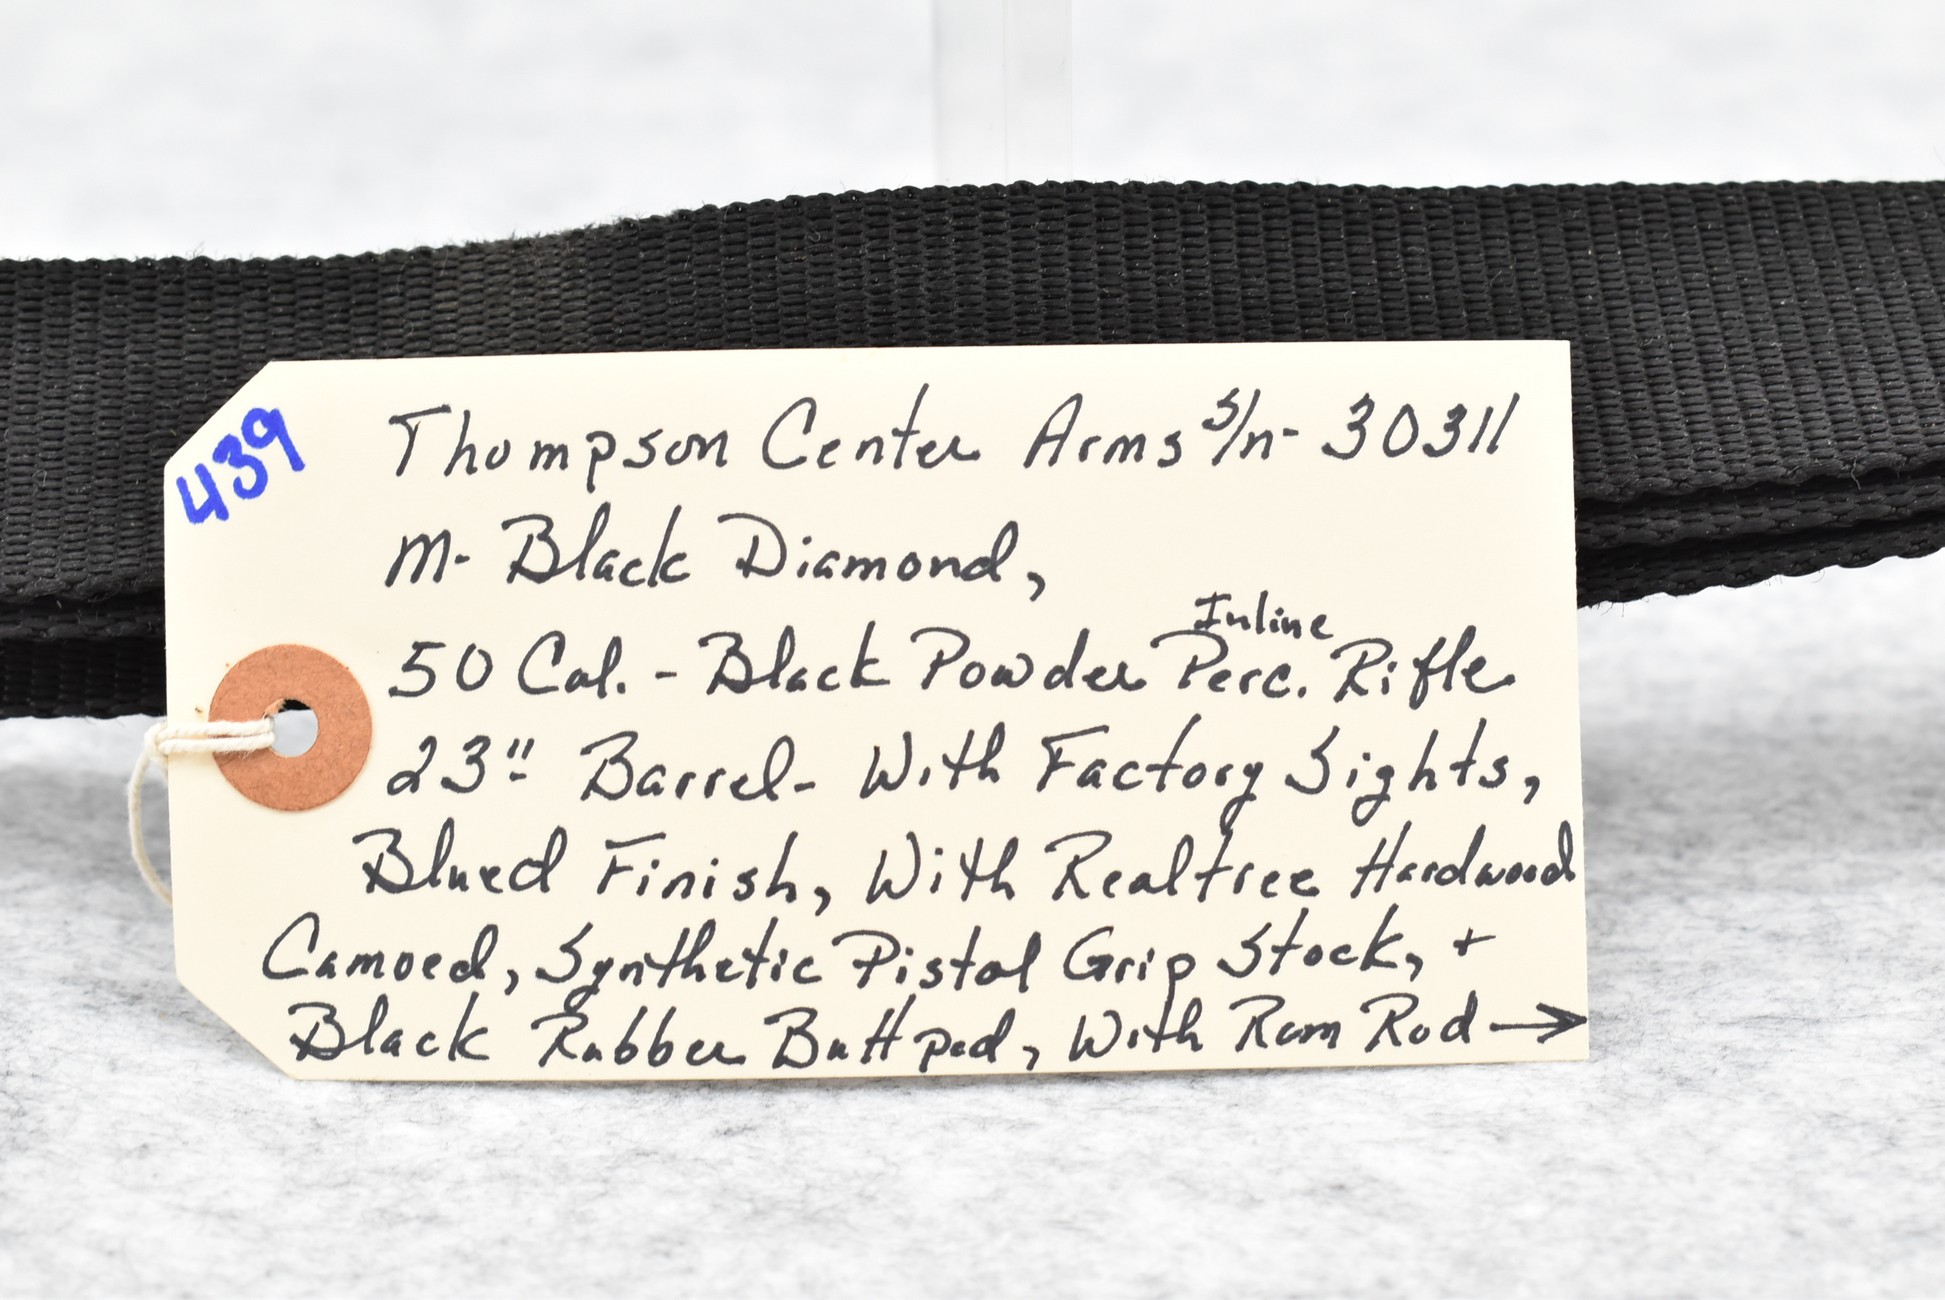 439
Thompson Center Arms S/n- 30311
M- Black Diamond,
Inline
50 Cal. - Black Powder Perc. Rifle
23" Barrel- With Factory Sights,
Blued Finish, With Realtree Hardwood
Camoed, Synthetic Pistol Grip Stock, +
Black Rubber Butt pad, With Ram Rod →